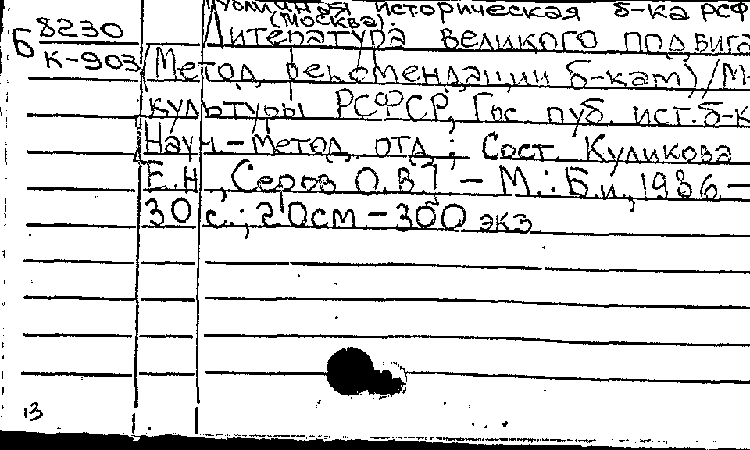 Публичная историческая б-ка РСФ
(Москва).
Б 8230
К-903
Литература великого подвига
(Метод. рекомендации б-кам) / М-
культуры РСФСР, Гос. пуб. ист. б-к
Науч.-метод. отд.; Сост. Куликова
Е.Н., Серов О.В.] – М.: Б.и., 1986 –
30 с.; 20см – 300 экз
13